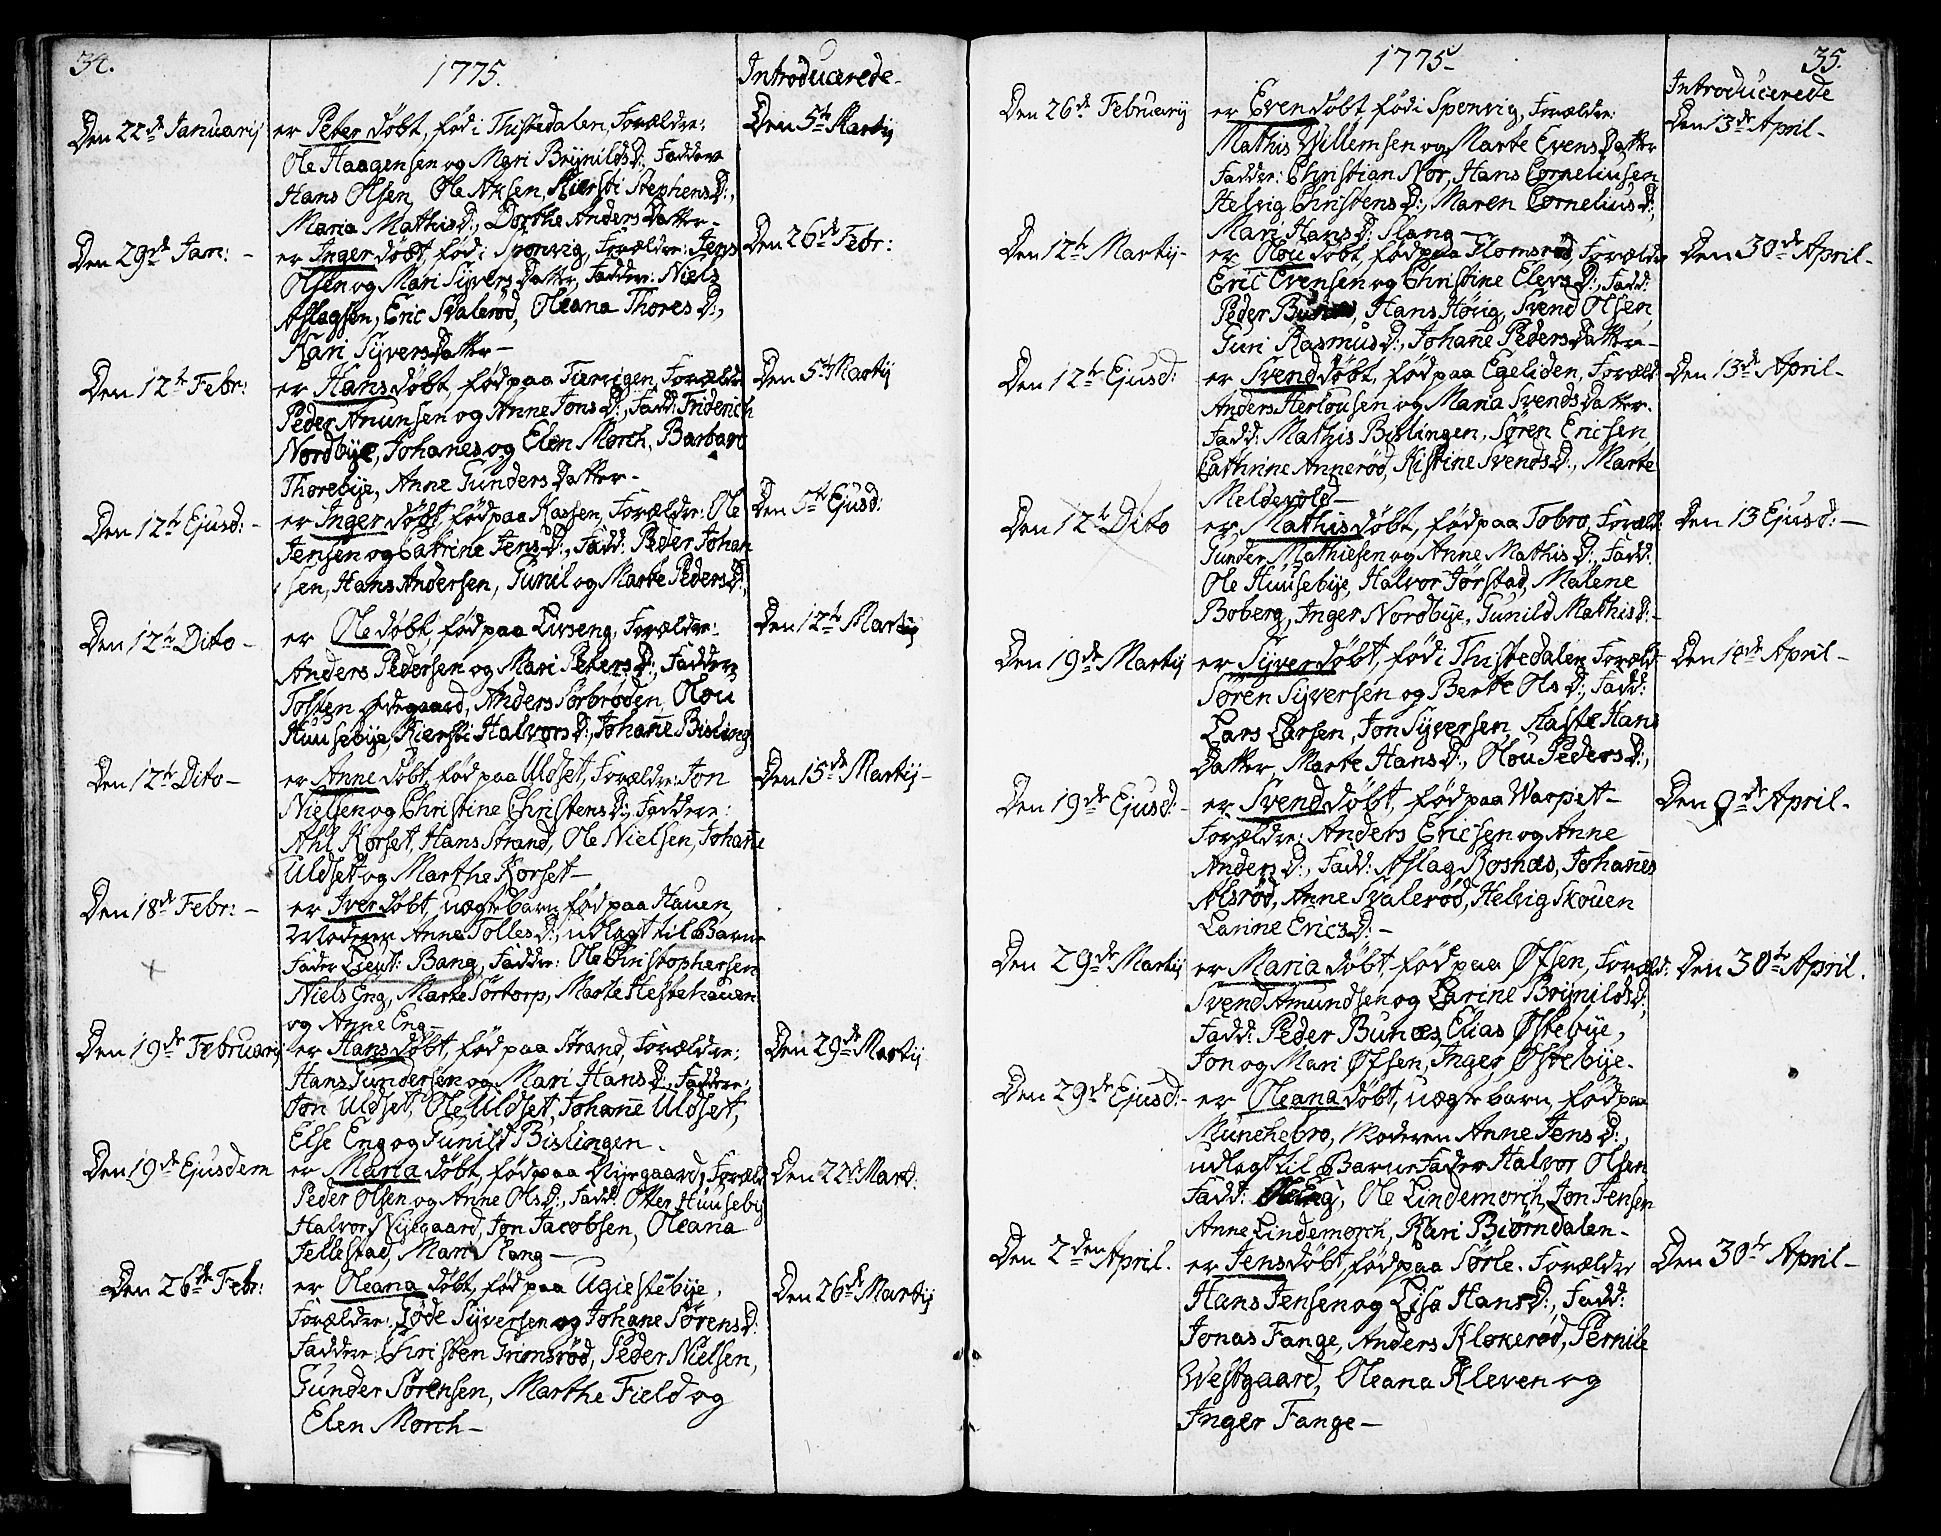 34.
1775.
Introducerede-
Den 22de Januarij
er Peter døbt, fød i Thistedalen, Forældre:
Den 5te Martij
Ole Haagensen og Mari Brynilds D:, Faddere
Hans Olsen, Ole Aksen, Kiersti Stephens D:,
Maria Mathis D:, Dorthe Anders Datter-
Den 29de Jan: -
er Inger døbt, fød i Sponvig, Forældre: Jens
Den 26de Febr:
Olsen og Mari Syvers Datter, Faddere: Niels
Aslagsen, Eric Svalerød, Oleana Thores D:,
Kari Syvers Datter-
Den 12te Febr:
er Hans døbt, fød paa Tiervigen, Forældre
Den 5te Martij
Peder Anunsen og Anne Jons D:, Fadd: Friderich
Nordbye, Johanes og Elen Morch, Barbara
Thorebye, Anne Gunders Datter-
Den 12te Ejusd: -
er Inger døbt, fød paa Kassen, Forældre: Ole
Den 5te Ejusd:
Jensen og Catrine Jens D:, Fadd: Peder Johan
sen, Hans Andersen, Gunil og Marte Peders D:,
Den 12te Dito -
er Ole døbt, fød paa Livseng, Forældre:
Den 12te Martij
Anders Pedersen og Mari Peters D:, Faddere
Tosten Ødegaard, Anders Sørbrøden, Olou
Huusebye, Kiersti Halvors D:, Johane Bisling
Den 12te Dito -
er Anne døbt, fød paa Uldset, Forældre: Jon
Den 15de Martij -
Nielsen og Christine Christens D:, Faddere:
Ahl Korset, Hans Strand, Ole Nielsen, Johane
Uldset og Marthe Korset-
Den 18de Febr: -
er Iver døbt, uægte barn fød paa Hauen,
Moderen Anne Tolles D:, udlagt til Barne
Fader Lieut: Bang, Faddere: Ole Christophersen
Niels Eng, Marte Sørtorp, Marte Hestehauen
og Anne Eng-
Den 19de Februarij
er Hans døbt, fød paa Strand, Forældre:
Den 29de Martij
Hans Gundersen og Mari Hans D:, Faddere:
Jon Uldset, Ole Uldset, Johane Uldset,
Else Eng og Gunild Bislingen.
Den 19de Ejusdem
er Maria døbt, fød paa Nyegaard, Foræld
Den 22de Mart:
Peder Olsen og Anne Ols D:, Fadd: Otter Huusebij
Halvor Nyegaard, Jon Jacobsen, Oleana
Tellestad, Mari Stang-
Den 26de Febr:
er Oleana døbt, fød paa Ugiestebye,
Den 26de Martij
Forældre: Gøde Syversen og Johane Sørens D:
Faddere: Christen Grimsrød, Peder Nielsen,
Gunder Sørensen, Marthe Field og
Elen Morch-
35.
1775-
Introducerede
Den 26de Februarij
er Even døbt, fød i Sponvig, Forældre:
Den 13de April-
Mathis Willemsen og Marte Evens Datter
Faddre: Christian Nor, Hans Corneliusen
Helvig Christens D:, Maren Cornelius D:,
Mari Hans D: Stang-
Den 12te Martij-
er Olou døbt, fød paa Flomsrød, Forældre
Den 30de April-
Eric Evensen og Christine Elevs D:, Fadd:
Peder Bunes, Hans Høvig, Svend Olsen,
Guri Rasmus D:, Johane Peders Datter-
Den 12te Ejusd:
er Svend døbt, fød paa Egeliden, Foræld:
Den 13de April-
Anders Herlousen og Maria Svends Datter.
Fadd: Mathis Bislingen, Søren Ericsen,
Cathrine Annerød, Kistine Svends D:, Marte
Meldevold-
Den 12te Dito
er Mathis døbt, fød paa Tobro, Foræld:
Den 13 Ejusd: -
Gunder Mathiesen og Anne Mathis D:, Fadd:
Ole Huusebye, Halvor Jørstad, Malene
Boberg, Inger Nordbye, Gunild Mathis D:-
Den 19de Martij
er Syver døbt, fød i Thistedalen Foræld
Den 14de April-
Søren Syversen og Berte Ols D:, Fadd:
Lars Larsen, Jon Syversen, Aaste Hans
Datter, Marte Hans D:, Olou Peders D:,
Den 19de Ejusd-
er Svend døbt, fød paa Warpet-
Den 9de April-
Forældre: Anders Ericsen og Anne
Anders D:, Fadd: Aslag Rosnæs, Johanes
Alsrød, Anne Svalerød, Helvig Skouen
Larine Erics D: -
Den 29de Martij
er Maria døbt, fød paa Øfsen, Foræld:
Den 30te April.
Svend Amundsen og Larine Brynilds D:,
Fadd: Peder Bunæs, Elias Østebye,
Jon og Mari Øfsen, Inger Østebye.
Den 29de Ejusd:-
er Oleana døbt, uægte barn, fød paa
Munchebro, Moderen Anne Jens D:,
udlagt til Barne Fader Halvor Olsen
Fadd: Ole Eng, Ole Lindemorch, Jon Jensen
Anne Lindemorch, Kari Biørndalen-
Den 2den April.
er Jens døbt, fød paa Sørle. Forældre
Den 30te April-
Hans Jensen og Lisa Hans D:, Fadd:
Jonas Fange, Anders Klokerød, Pernile
Westgaard, Oleana Kleven og
Inger Fange-